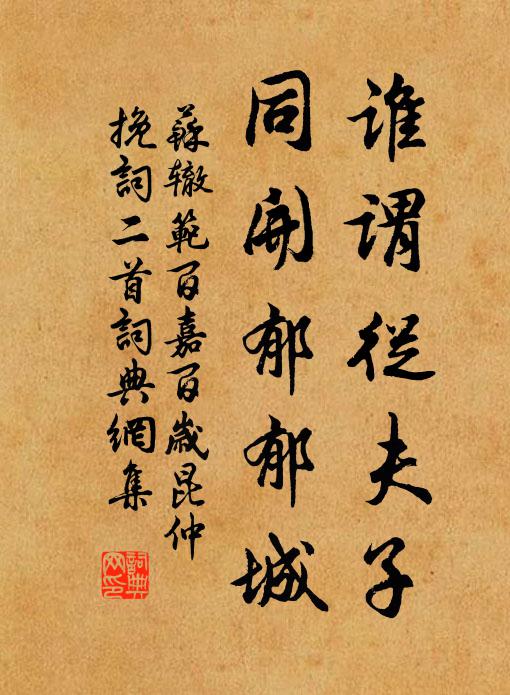 谁谓從夫子
同開郁郁城
蘇辙範百嘉百歲昆仲
挽詞二首詞典網集
詞典
网印